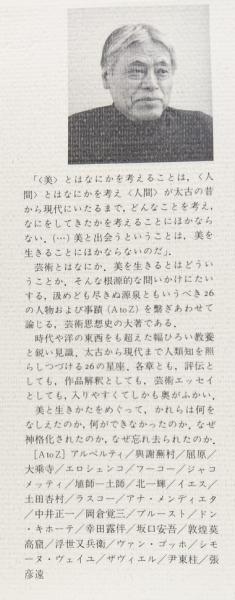 「〈美〉とはなにかを考えることは，〈人
間〉とはなにかを考え〈人間〉が太古の昔
から現代にいたるまで，どんなことを考え，
なにをしてきたかを考えることにほかなら
ない．(…) 美と出会うということは，美を
生きることにほかならないのだ」．
芸術とはなにか，美を生きるとはどうい
うことか，そんな根源的な問いかけにたい
する，汲めども尽きぬ源泉ともいうべき26
の人物および事蹟（AtoZ）を繫ぎあわせて
論じる，芸術思想史の大著である．
時代や洋の東西をも超えた幅ひろい教養
と鋭い見識，太古から現代まで人類知を照
らしつづける26の星座，各章とも，評伝と
しても，作品解釈としても，芸術エッセイ
としても，入りやすくてしかも奥がふかい．
美と生きかたをめぐって，かれらは何を
なしえたのか，何ができなかったのか，なぜ
神格化されたのか，なぜ忘れ去られたのか．
［AtoZ］アルベルティ／與謝蕪村／屈原／
大乗寺／エロシェンコ／フーコー／ジャコ
メッティ／埴師―土師／北一輝／イエス／
土田杏村／ラスコー／アナ・メンディエタ
／中井正一／岡倉覚三／プルースト／ドン
・キホーテ／幸田露伴／坂口安吾／敦煌莫
高窟／浮世又兵衛／ヴァン・ゴッホ／シモ
ーヌ・ヴェイユ／ザヴィエル／尹東柱／張
彦遠